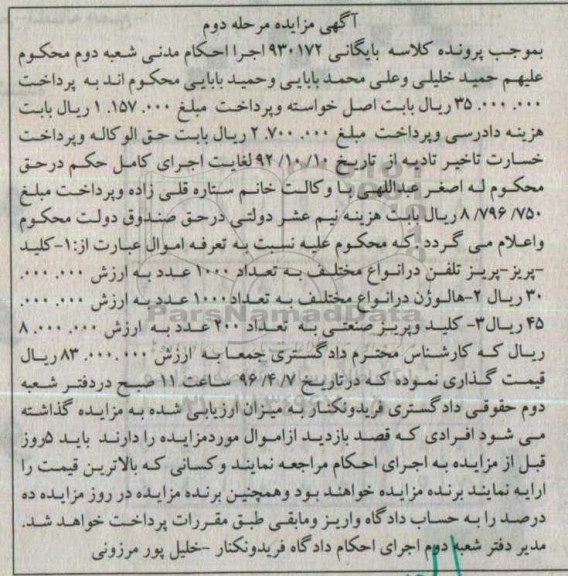 آگهی مزایده مرحله دوم
بموجب پرونده کلاسه بایگانی ۹۳۰۱۷۲ اجرا احکام مدنی شعبه دوم محکوم
علیهم حمید خلیلی وعلی محمد بابایی وحمید بابایی محکوم اند به پرداخت
۰۰۰. ۰۰۰. ۳۵ ریال بابت اصل خواسته وپرداخت مبلغ ۰۰۰. ۱.۱۵۷ ریال بابت
هزینه دادرسی وپرداخت مبلغ ۰۰۰. ۲.۷۰۰ ریال بابت حق الوکاله وپرداخت
خسارت تاخیر تادیه از تاریخ ۹۲/۱۰/۱۰ لغایت اجرای کامل حکم درحق
محکوم له اصغر عبداللهی با وکالت خانم ستاره قلی زاده وپرداخت مبلغ
۸/۷۹۶/۷۵۰ ریال بابت هزینه نیم عشر دولتی درحق صندوق دولت محکوم
واعلام می گردد .که محکوم علیه نسبت به تعرفه اموال عبارت از:۱-کلید
-پریز-پریز تلفن درانواع مختلف به تعداد ۱۰۰۰ عدد به ارزش ۰۰۰. ۰۰۰.
۳۰ ریال ۲-هالوژن درانواع مختلف به تعداد۱۰۰۰ عدد به ارزش ۰۰۰. ۰۰۰.
۴۵ ریال۳- کلید وپریز صنعتی به تعداد ۲۰۰ عدد به ارزش ۰۰۰. ۰۰۰. ۸
ریال که کارشناس محترم دادگستری جمعا به ارزش ۰۰۰ .۰۰۰. ۸۳ ریال
قیمت گذاری نموده که درتاریخ ۹۶/۴/۷ ساعت ۱۱ صبح دردفتر شعبه
دوم حقوقی دادگستری فریدونکنار به میزان ارزیابی شده به مزایده گذاشته
می شود افرادی که قصد بازدید ازاموال موردمزایده را دارند باید ۵روز
قبل از مزایده به اجرای احکام مراجعه نمایند وکسانی که بالاترین قیمت را
ارایه نمایند برنده مزایده خواهند بود وهمچنین برنده مزایده در روز مزایده ده
درصد را به حساب دادگاه واریز ومابقی طبق مقررات پرداخت خواهد شد.
مدیر دفتر شعبه دوم اجرای احکام دادگاه فریدونکنار -خلیل پور مرزونی
ParsNamadData